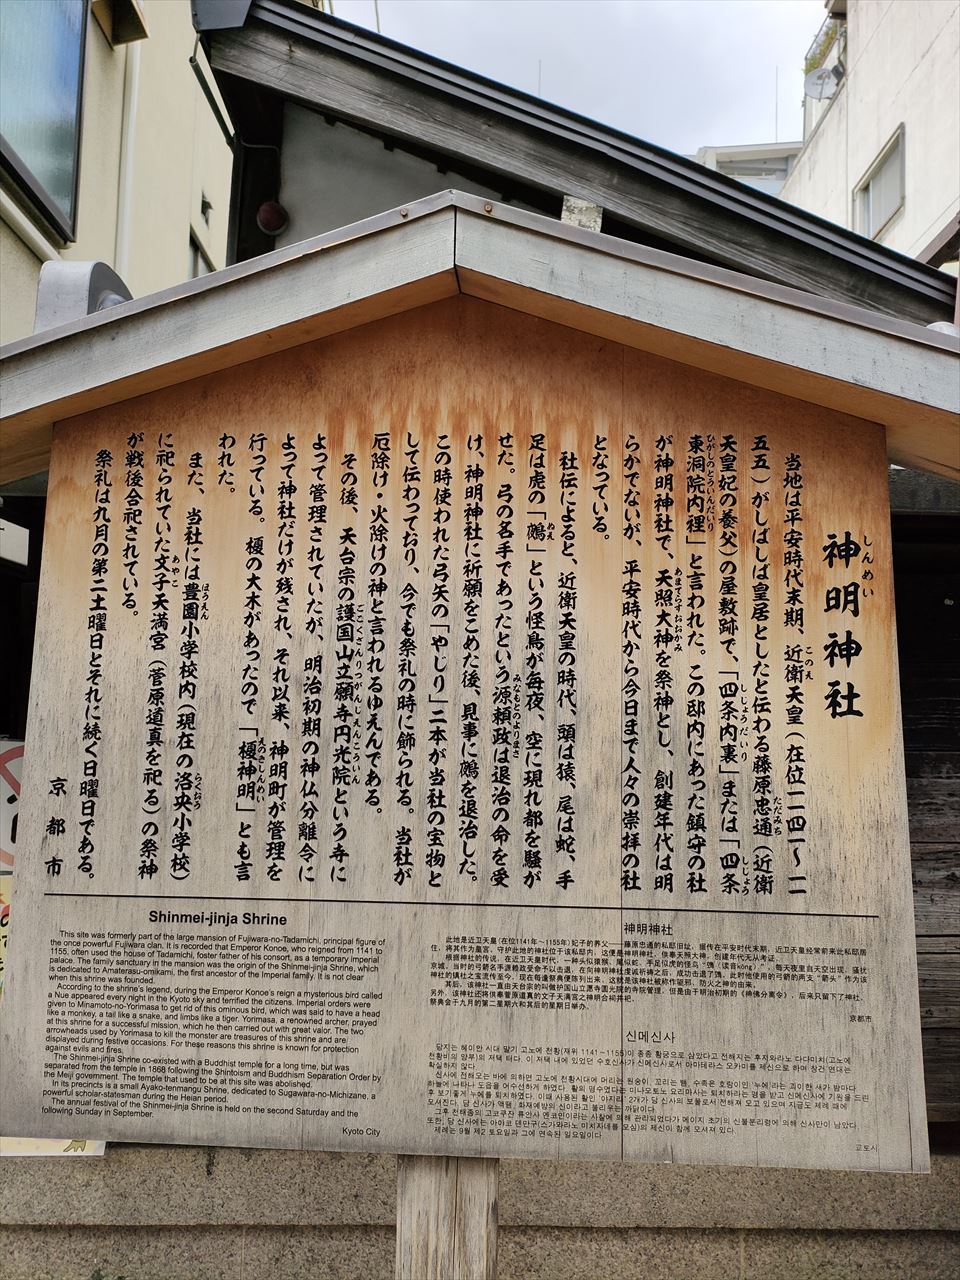 神明神社
しんめい
当地は平安時代末期、近衛天皇（在位一一四一～一一
五五）がしばしば皇居としたと伝わる藤原忠通（近衛
天皇妃の養父）の屋敷跡で、「四条内裏」または「四条
東洞院内裡」と言われた。この邸内にあった鎮守の社
が神明神社で、天照大神を祭神とし、創建年代は明
らかでないが、平安時代から今日まで人々の崇拝の社
となっている。
社伝によると、近衛天皇の時代、頭は猿、尾は蛇、手
足は虎の「鵺」という怪鳥が毎夜、空に現れ都を騒が
せた。弓の名手であったという源頼政は退治の命を受
け、神明神社に祈願をこめた後、見事に鵺を退治した。
この時使われた弓矢の「やじり」二本が当社の宝物と
して伝わっており、今でも祭礼の時に飾られる。当社が
厄除け・火除けの神と言われるゆえんである。
その後、天台宗の護国山立願寺円光院という寺に
よって管理されていたが、明治初期の神仏分離令に
よって神社だけが残され、それ以来、神明町が管理を
行っている。榎の大木があったので「榎神明」とも言
われた。
また、当社には豊園小学校内（現在の洛央小学校）
に祀られていた文子天満宮（菅原道真を祀る）の祭神
が戦後合祀されている。
祭礼は九月の第二土曜日とそれに続く日曜日である。
京都市
Shinmei-jinja Shrine
This site was formerly part of the large mansion of Fujiwara-no-Tadamichi, principal figure of
the once powerful Fujiwara clan. It is recorded that Emperor Konoe, who reigned from 1141 to
1155, often used the house of Tadamichi, foster father of his consort, as a temporary imperial
palace. The family sanctuary in the mansion was the origin of the Shinmei-jinja Shrine, which
is dedicated to Amaterasu-omikami, the first ancestor of the Imperial family. It is not clear
when this shrine was founded.
According to the shrine's legend, during the Emperor Konoe's reign a mysterious bird called
a Nue appeared every night in the Kyoto sky and terrified the citizens. Imperial orders were
given to Minamoto-no-Yorimasa to get rid of this ominous bird, which was said to have a head
like a monkey, a tail like a snake, and limbs like a tiger. Yorimasa, a renowned archer, prayed
at this shrine for a successful mission, which he then carried out with great valor. The two
arrowheads used by Yorimasa to kill the monster are treasures of this shrine and are
displayed during festive occasions. For these reasons this shrine is known for protection
against evils and fires.
The Shinmei-jinja Shrine co-existed with a Buddhist temple for a long time, but was
separated from the temple in 1868 following the Shintoism and Buddhism Separation Order by
the Meiji government. The temple that used to be at this site was abolished.
In its precincts is a small Ayako-tenmangu Shrine, dedicated to Sugawara-no-Michizane, a
powerful scholar-statesman during the Heian period.
The annual festival of the Shinmei-jinja Shrine is held on the second Saturday and the
following Sunday in September.
Kyoto City
神明神社
此地是近卫天皇（在位1141年～1155年）妃子的养父——藤原忠通的私邸旧址，据传在平安时代末期，近卫天皇经常前来此私邸居
住，将其作为皇宫。守护此地的神社位于该私邸内，这便是神明神社，供奉天照大神，创建年代无从考证。
京都市
신메이신사
교토시